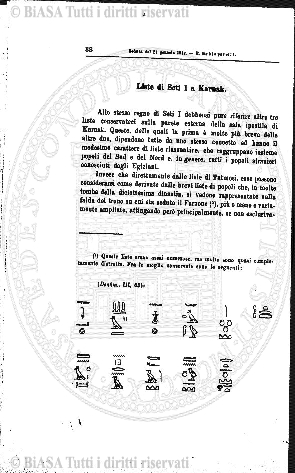 © BiASA Tutti i diritti riservati
88
Seduta del 21 gennaio 1912. —
Liste di Seti I a Karnak.
Allo stesso regno di Seti I debbonsi pure riferire altre tre
liste conservateci sulla parete esterna della sala ipostila di
Karnak. Queste, delle quali la prima è molto più breve delle
altre due, dipendono tutte da uno stesso concetto ed hanno il
medesimo carattere di liste riassuntive, che raggruppano insieme
popoli del Sud e del Nord e, in genere, tutti i popoli stranieri
conosciuti dagli Egiziani.
Invece che direttamente dalle liste di Tutmosi, esse possono
considerarsi come derivate dalle brevi liste di popoli che, in molte
tombe della diciottesima dinastia, si vedono rappresentate sulla
faldа del trono su cui sta seduto il Faraone (¹), più o meno e varia-
mente ampliate, attingendo però principalmente, se non esclusiva-
(¹) Queste liste erano assai numerose, ma molte sono quasi comple-
tamente distrutte. Fra le meglio conservate sono le seguenti:
III,
© BiASA Tutti i diritti riservati